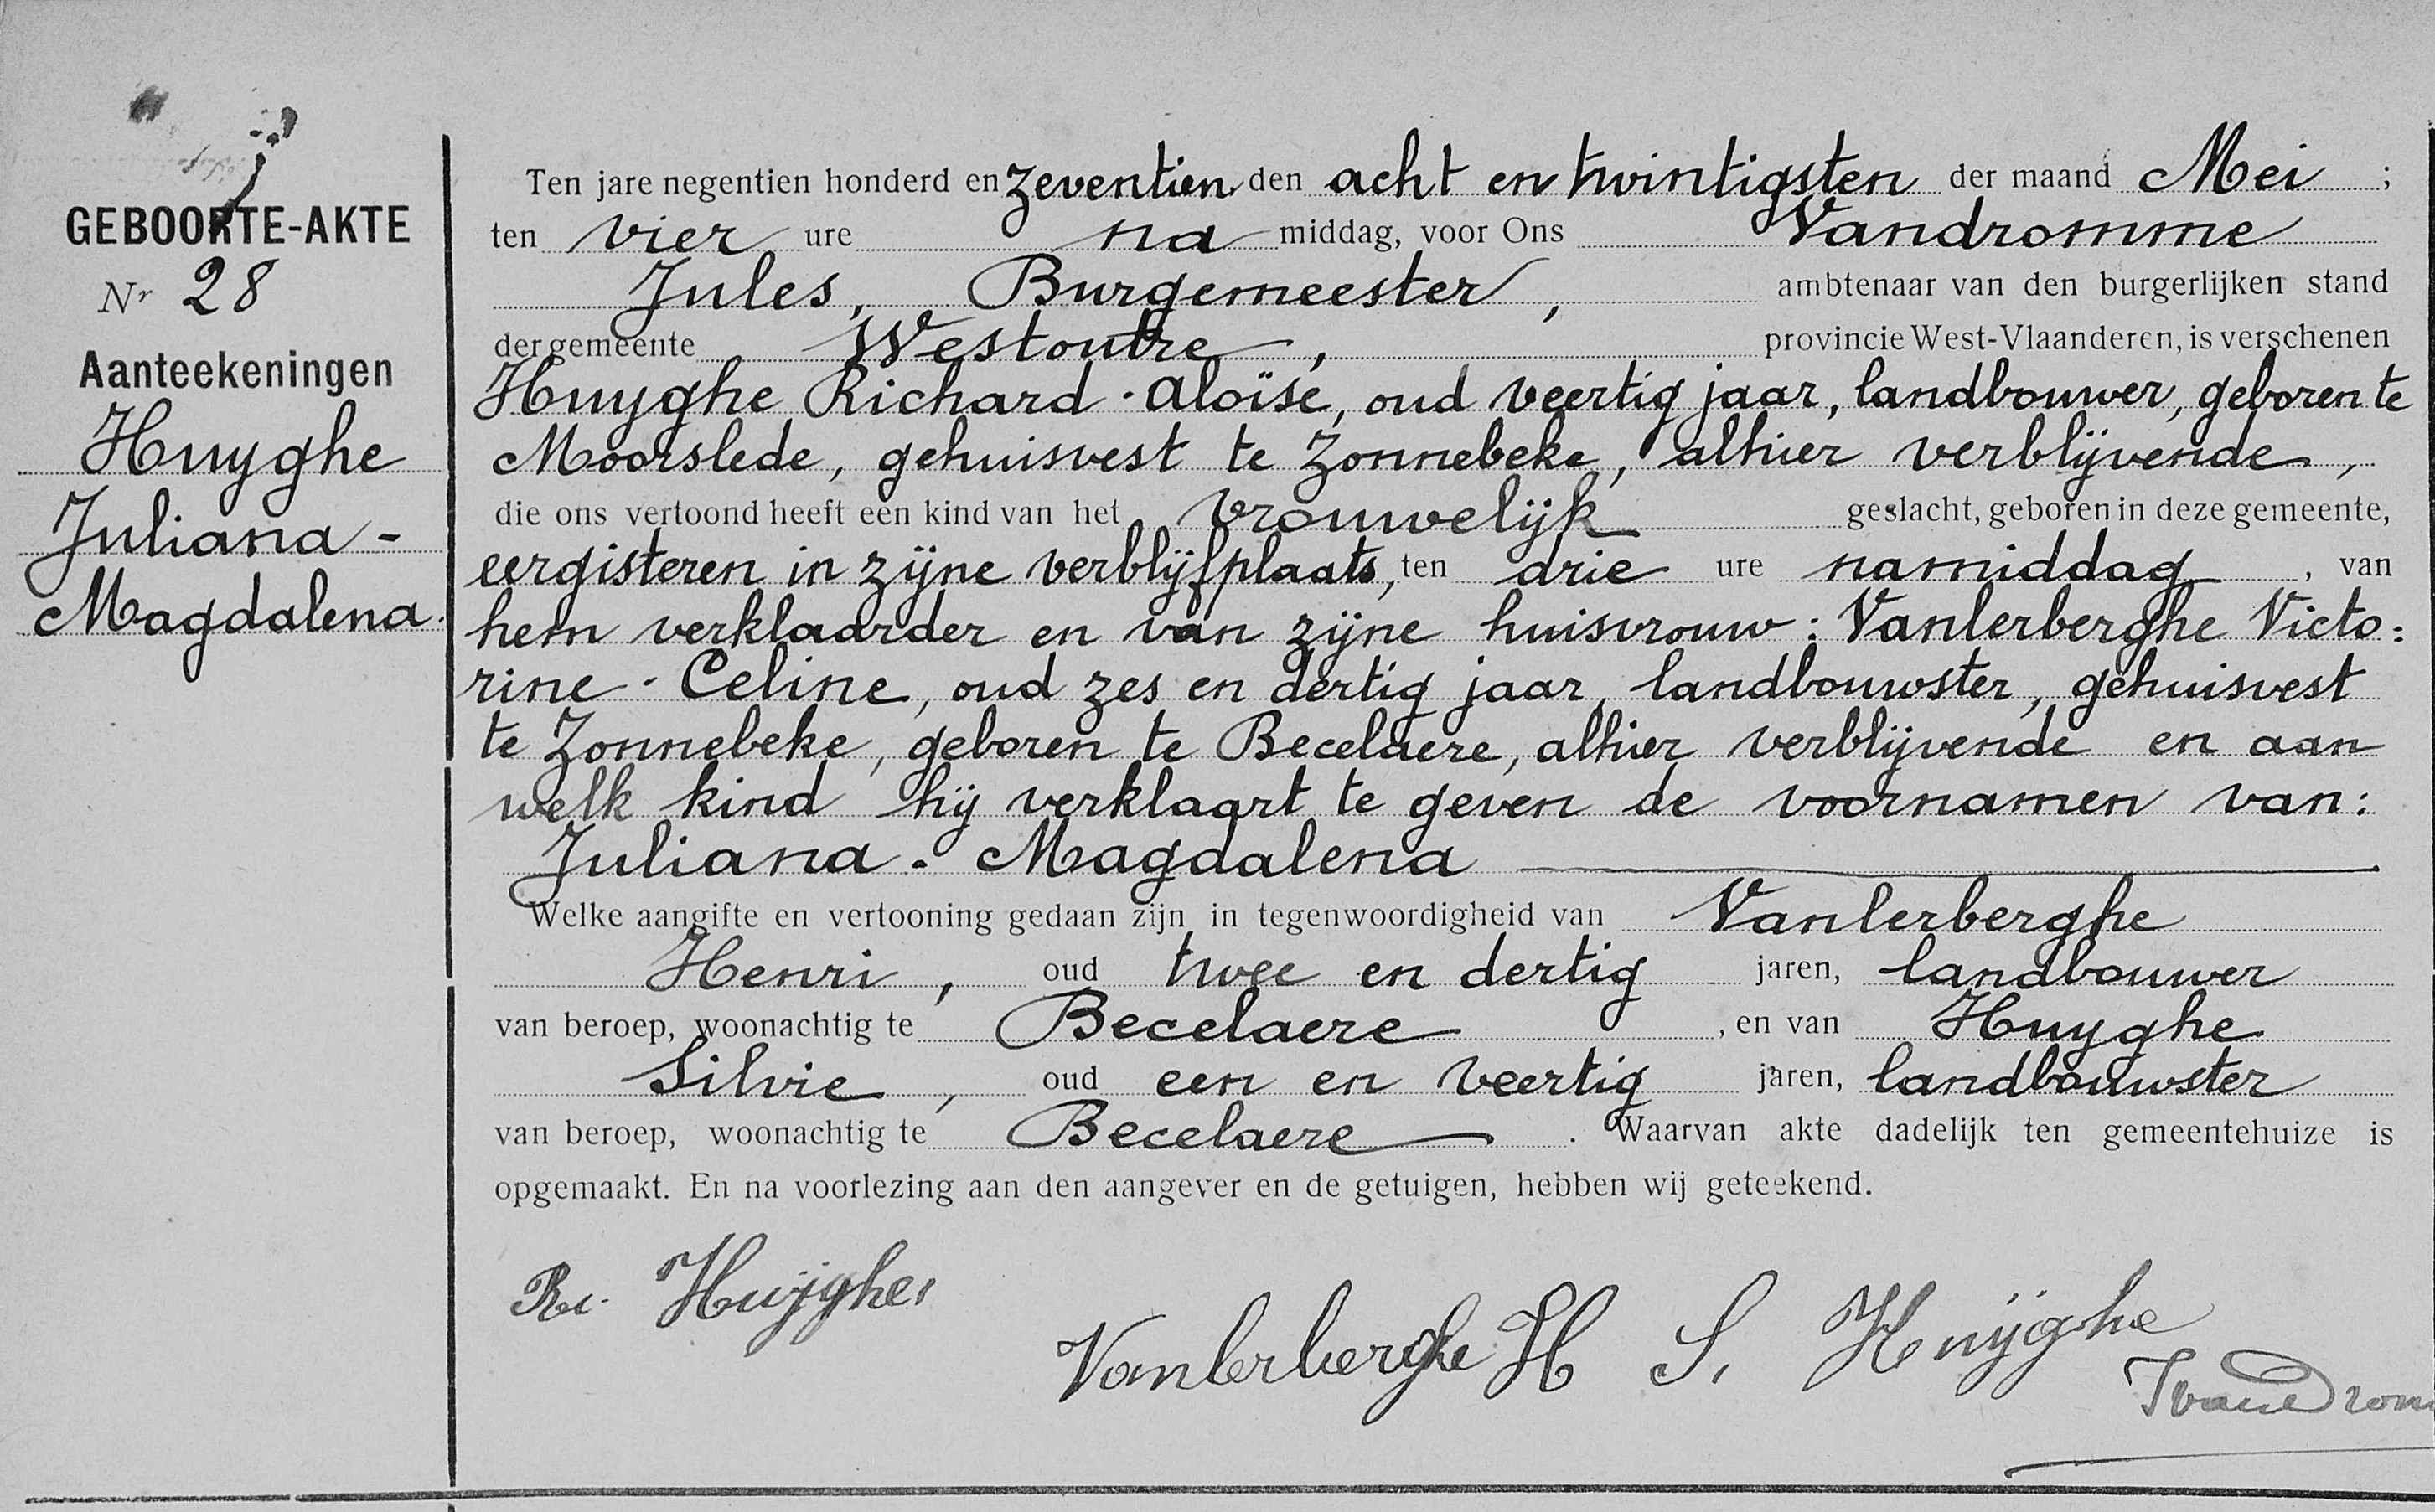 GEBOORTE-AKTE
Nr 28
Aanteekeningen
Huyghe
Juliana -
Magdalena.
Ten jare negentien honderd en zeventien den acht en twintigsten der maand Mei ;
ten vier ure na middag, voor Ons Vandromme
Jules, Burgemeester, ambtenaar van den burgerlijken stand
der gemeente Westoutre, provincie West-Vlaanderen, is verschenen
Huyghe Richard - Aloïse, oud veertig jaar, landbouwer, geboren te
Moorslede, gehuisvest te Zonnebeke, alhier verblijvende,
die ons vertoond heeft een kind van het vrouwelijk geslacht, geboren in deze gemeente,
eergisteren in zijne verblijfplaats, ten drie ure namiddag , van
hem verklaarder en van zijne huisvrouw: Vanlerberghe Victo:
rine - Celine, oud zes en dertig jaar, landbouwster, gehuisvest
te Zonnebeke, geboren te Becelaere, alhier verblijvende en aan
welk kind hij verklaart te geven de voornamen van:
Juliana - Magdalena
Welke aangifte en vertooning gedaan zijn in tegenwoordigheid van Vanlerberghe
Henri, oud twee en dertig jaren, landbouwer
van beroep, woonachtig te Becelaere , en van Huyghe
Silvie, oud een en veertig jaren, landbouwster
van beroep, woonachtig te Becelaere . Waarvan akte dadelijk ten gemeentehuize is
opgemaakt. En na voorlezing aan den aangever en de getuigen, hebben wij geteekend.
Huyghe
Vanlerberghe H S. Huyghe